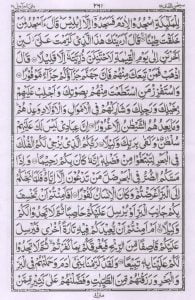 لِلْمَلٰٓئِكَةِ اسْجُدُوْا لِاٰدَمَ فَسَجَدُوْٓا اِلَّآ اِبْلِيْسَ قَالَ ءَاَسْجُدُ
لِمَنْ خَلَقْتَ طِيْنًا قَالَ اَرَءَيْتَكَ هٰذَا الَّذِيْ كَرَّمْتَ عَلَيَّ لَئِنْ
اَخَّرْتَنِ اِلٰى يَوْمِ الْقِيٰمَةِ لَاَحْتَنِكَنَّ ذُرِّيَّتَهٗٓ اِلَّا قَلِيْلًا قَالَ
اذْهَبْ فَمَنْ تَبِعَكَ مِنْهُمْ فَاِنَّ جَهَنَّمَ جَزَآؤُكُمْ جَزَآءً مَّوْفُوْرًا
وَاسْتَفْزِزْ مَنِ اسْتَطَعْتَ مِنْهُمْ بِصَوْتِكَ وَاَجْلِبْ عَلَيْهِمْ
بِخَيْلِكَ وَرَجِلِكَ وَشَارِكْهُمْ فِي الْاَمْوَالِ وَالْاَوْلَادِ وَعِدْهُمْ
وَمَا يَعِدُهُمُ الشَّيْطٰنُ اِلَّا غُرُوْرًا اِنَّ عِبَادِيْ لَيْسَ لَكَ عَلَيْهِمْ
سُلْطٰنٌ وَكَفٰى بِرَبِّكَ وَكِيْلًا رَبُّكُمُ الَّذِيْ يُزْجِيْ لَكُمُ الْفُلْكَ
فِي الْبَحْرِ لِتَبْتَغُوْا مِنْ فَضْلِهٖ اِنَّهٗ كَانَ بِكُمْ رَحِيْمًا وَاِذَا
مَسَّكُمُ الضُّرُّ فِي الْبَحْرِ ضَلَّ مَنْ تَدْعُوْنَ اِلَّآ اِيَّاهُ فَلَمَّا نَجّٰىكُمْ
اِلَى الْبَرِّ اَعْرَضْتُمْ وَكَانَ الْاِنْسَانُ كَفُوْرًا اَفَاَمِنْتُمْ اَنْ يَّخْسِفَ
بِكُمْ جَانِبَ الْبَرِّ اَوْ يُرْسِلَ عَلَيْكُمْ حَاصِبًا ثُمَّ لَا تَجِدُوْا لَكُمْ
وَكِيْلًا اَمْ اَمِنْتُمْ اَنْ يُّعِيْدَكُمْ فِيْهِ تَارَةً اُخْرٰى فَيُرْسِلَ
عَلَيْكُمْ قَاصِفًا مِّنَ الرِّيْحِ فَيُغْرِقَكُمْ بِمَا كَفَرْتُمْ ثُمَّ لَا تَجِدُوْا لَكُمْ
عَلَيْنَا بِهٖ تَبِيْعًا وَلَقَدْ كَرَّمْنَا بَنِيْٓ اٰدَمَ وَحَمَلْنٰهُمْ فِي الْبَرِّ
وَالْبَحْرِ وَرَزَقْنٰهُمْ مِّنَ الطَّيِّبٰتِ وَفَضَّلْنٰهُمْ عَلٰى كَثِيْرٍ مِّمَّنْ